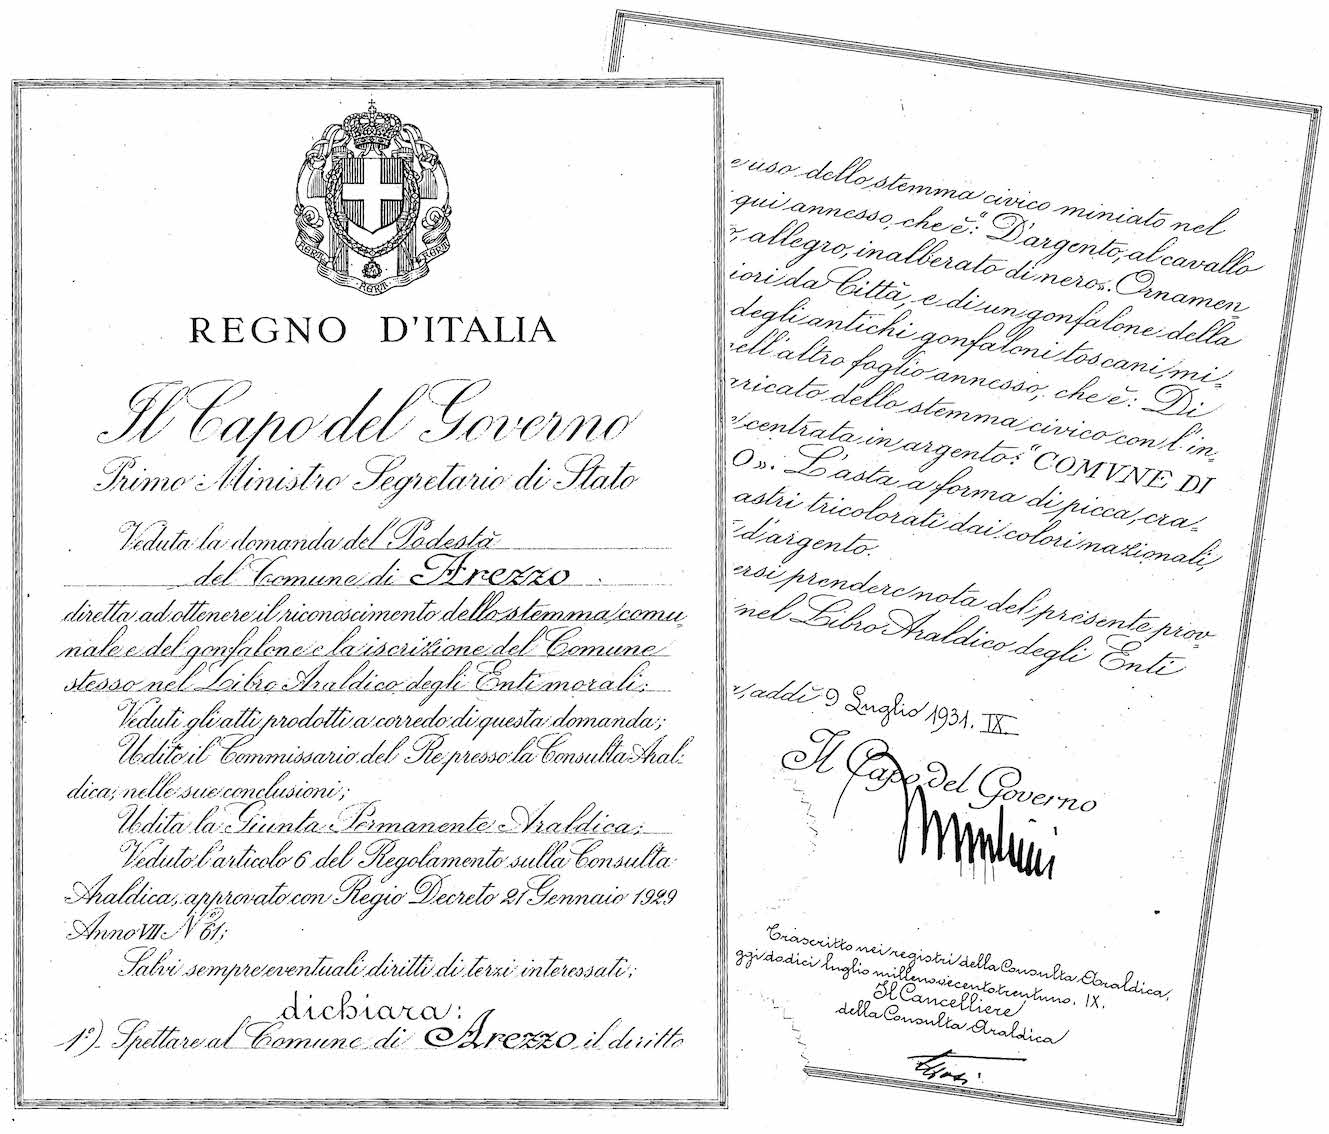 FERT FERT FERT
REGNO D'ITALIA
Il Capo del Governo
Primo Ministro Segretario di Stato
Veduta la domanda del Podestà
del Comune di Arezzo
diretta ad ottenere il riconoscimento dello stemma comu-
nale e del gonfalone e la iscrizione del Comune
stesso nel Libro Araldico degli Enti morali;
Veduti gli atti prodotti a corredo di questa domanda;
Udito il Commissario del Re presso la Consulta Aral-
dica, nelle sue conclusioni;
Udita la Giunta Permanente Araldica;
Veduto l'articolo 6 del Regolamento sulla Consulta
Araldica, approvato con Regio Decreto 21 Gennaio 1929
Anno VII Nº 61;
Salvi sempre eventuali diritti di terzi interessati;
dichiara:
1º) Spettare al Comune di Arezzo il diritto
e uso dello stemma civico miniato nel
qui annesso, che è: "D'argento, al cavallo
allegro, inalberato di nero». Ornamen-
iori da Città, e di un gonfalone della
degli antichi gonfaloni toscani, mi-
ell'altro foglio annesso, che è: Di
aricato dello stemma civico con l'in-
centrata in argento: "COMVNE DI
O». L'asta a forma di picca, cra-
astri tricolorati dai colori nazionali,
d'argento.
ersi prendere nota del presente prov-
nel Libro Araldico degli Enti
a, addì 9 Luglio 1931. IX
Il Capo del Governo
Mussolini
Trascritto nei registri della Consulta Araldica,
ggi dodici luglio millenovecentotrentuno. IX.
Il Cancelliere
della Consulta Araldica